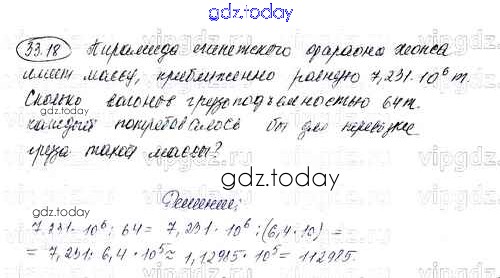 gdz.today
33.18 Пирамида египетского фараона Хеопса
имеет массу, приближенно равную 7,231·10⁶ т.
Сколько вагонов грузоподъемностью 64 т.
каждый потребовалось бы для перевозки
груза такой массы?
gdz.today
gdz.today
Решение:
7,231·10⁶ : 64 = 7,231·10⁶ : (6,4·10) =
= 7,231 : 6,4 · 10⁵ ≈ 1,12985·10⁵ = 112985.
gdz.today
vipgdz.ru